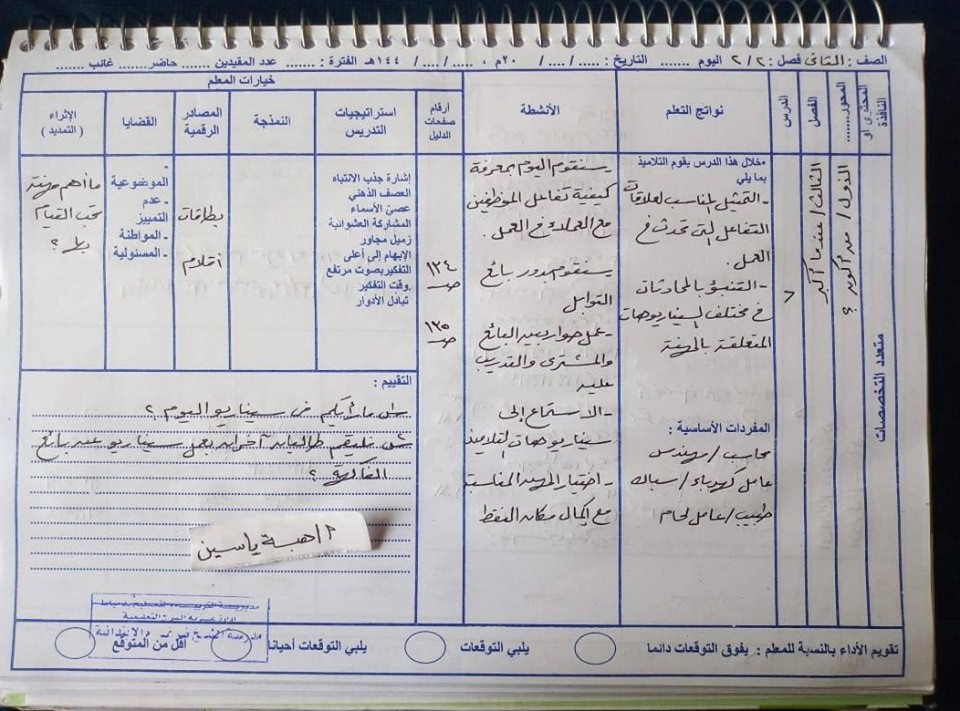 الصف : الثاني فصل : ٢/٢ اليوم ....... التاريخ : ..... /.... / ٢٠م ، ..... /.... / ١٤٤هـ الفترة : ....... عدد المقيدين ...... حاضر....... غائب .......
المحتوى أو
النافذة
متعدد التخصصات
المحور........
الاول / من أكون ؟
الفصل
الثالث / عندما أكبر
الدرس
٧
نواتج التعلم
خلال هذا الدرس يقوم التلاميذ
بما يلي
- التمثيل المناسب لعلاقات
التفاعل التى تحدث فى
العمل.
- التنبؤ بالمحادثات
فى مختلف السيناريوهات
المتعلقة بالمهنة
المفردات الأساسية :
محاسب / مهندس
عامل كهرباء / سباك
طبيب / عامل لحام
الأنشطة
- سنقوم اليوم بمعرفة
كيفية تفاعل الموظفين
مع العملاء فى العمل.
- سنقوم بدور بائع
التوابل
- عمل حوار بين البائع
والمشترى والتدريب
عليه
- الاستماع إلى
سيناريوهات التلاميذ
- اختيار المهنة المناسبة
مع إكمال مكان النقط
أرقام
صفحات
الدليل
١٢٤
صـ
١٢٥
صـ
خيارات المعلم
استراتيجيات
التدريس
إشارة جذب الانتباه
العصف الذهني
عصىّ الأسماء
المشاركة العشوائية
زميل مجاور
الإبهام إلى أعلى
التفكير بصوت مرتفع
.وقت التفكير
تبادل الأدوار
النمذجة
المصادر
الرقمية
بطاقات
أقلام
القضايا
-
الموضوعية
- عدم
التمييز
- المواطنة
- المسئولية
الإثراء
( التمديد )
ما أهم مهنة
تحب القيام
بها ؟
التقييم :
س١ ما رأيكم فى سيناريو اليوم ؟
فليقم طالبان آخران بعمل سيناريو عن بائع
الفاكهة ؟
أ/ هبة ياسين
تقويم الأداء بالنسبة للمعلم : يفوق التوقعات دائما
يلبي التوقعات
يلبي التوقعات أحيانا
أقل من المتوقع